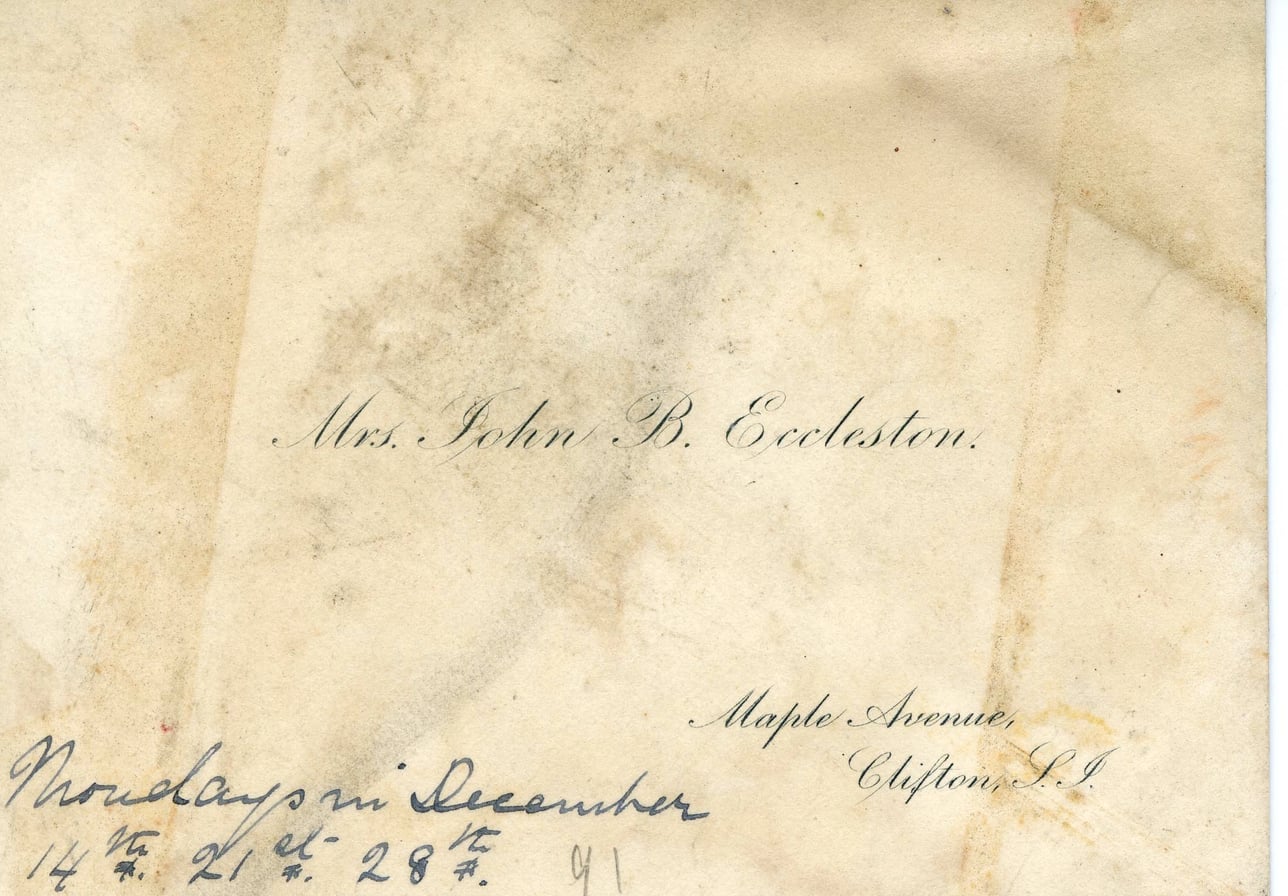 Mrs. John B. Eccleston.
Maple Avenue,
Clifton, S. I.
Mondays in December
14th. 21st. 28th. 91